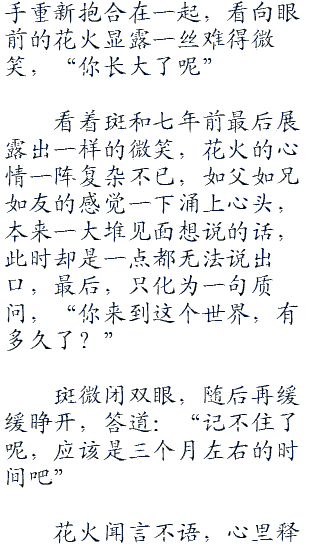 手重新抱合在一起，看向眼
前的花火显露一丝难得微
笑，“你长大了呢”
看着斑和七年前最后展
露出一样的微笑，花火的心
情一阵复杂不已，如父如兄
如友的感觉一下涌上心头，
本来一大堆见面想说的话，
此时却是一点都无法说出
口，最后，只化为一句质
问，“你来到这个世界，有
多久了？”
斑微闭双眼，随后再缓
缓睁开，答道：“记不住了
呢，应该是三个月左右的时
间吧”
花火闻言不语，心里释